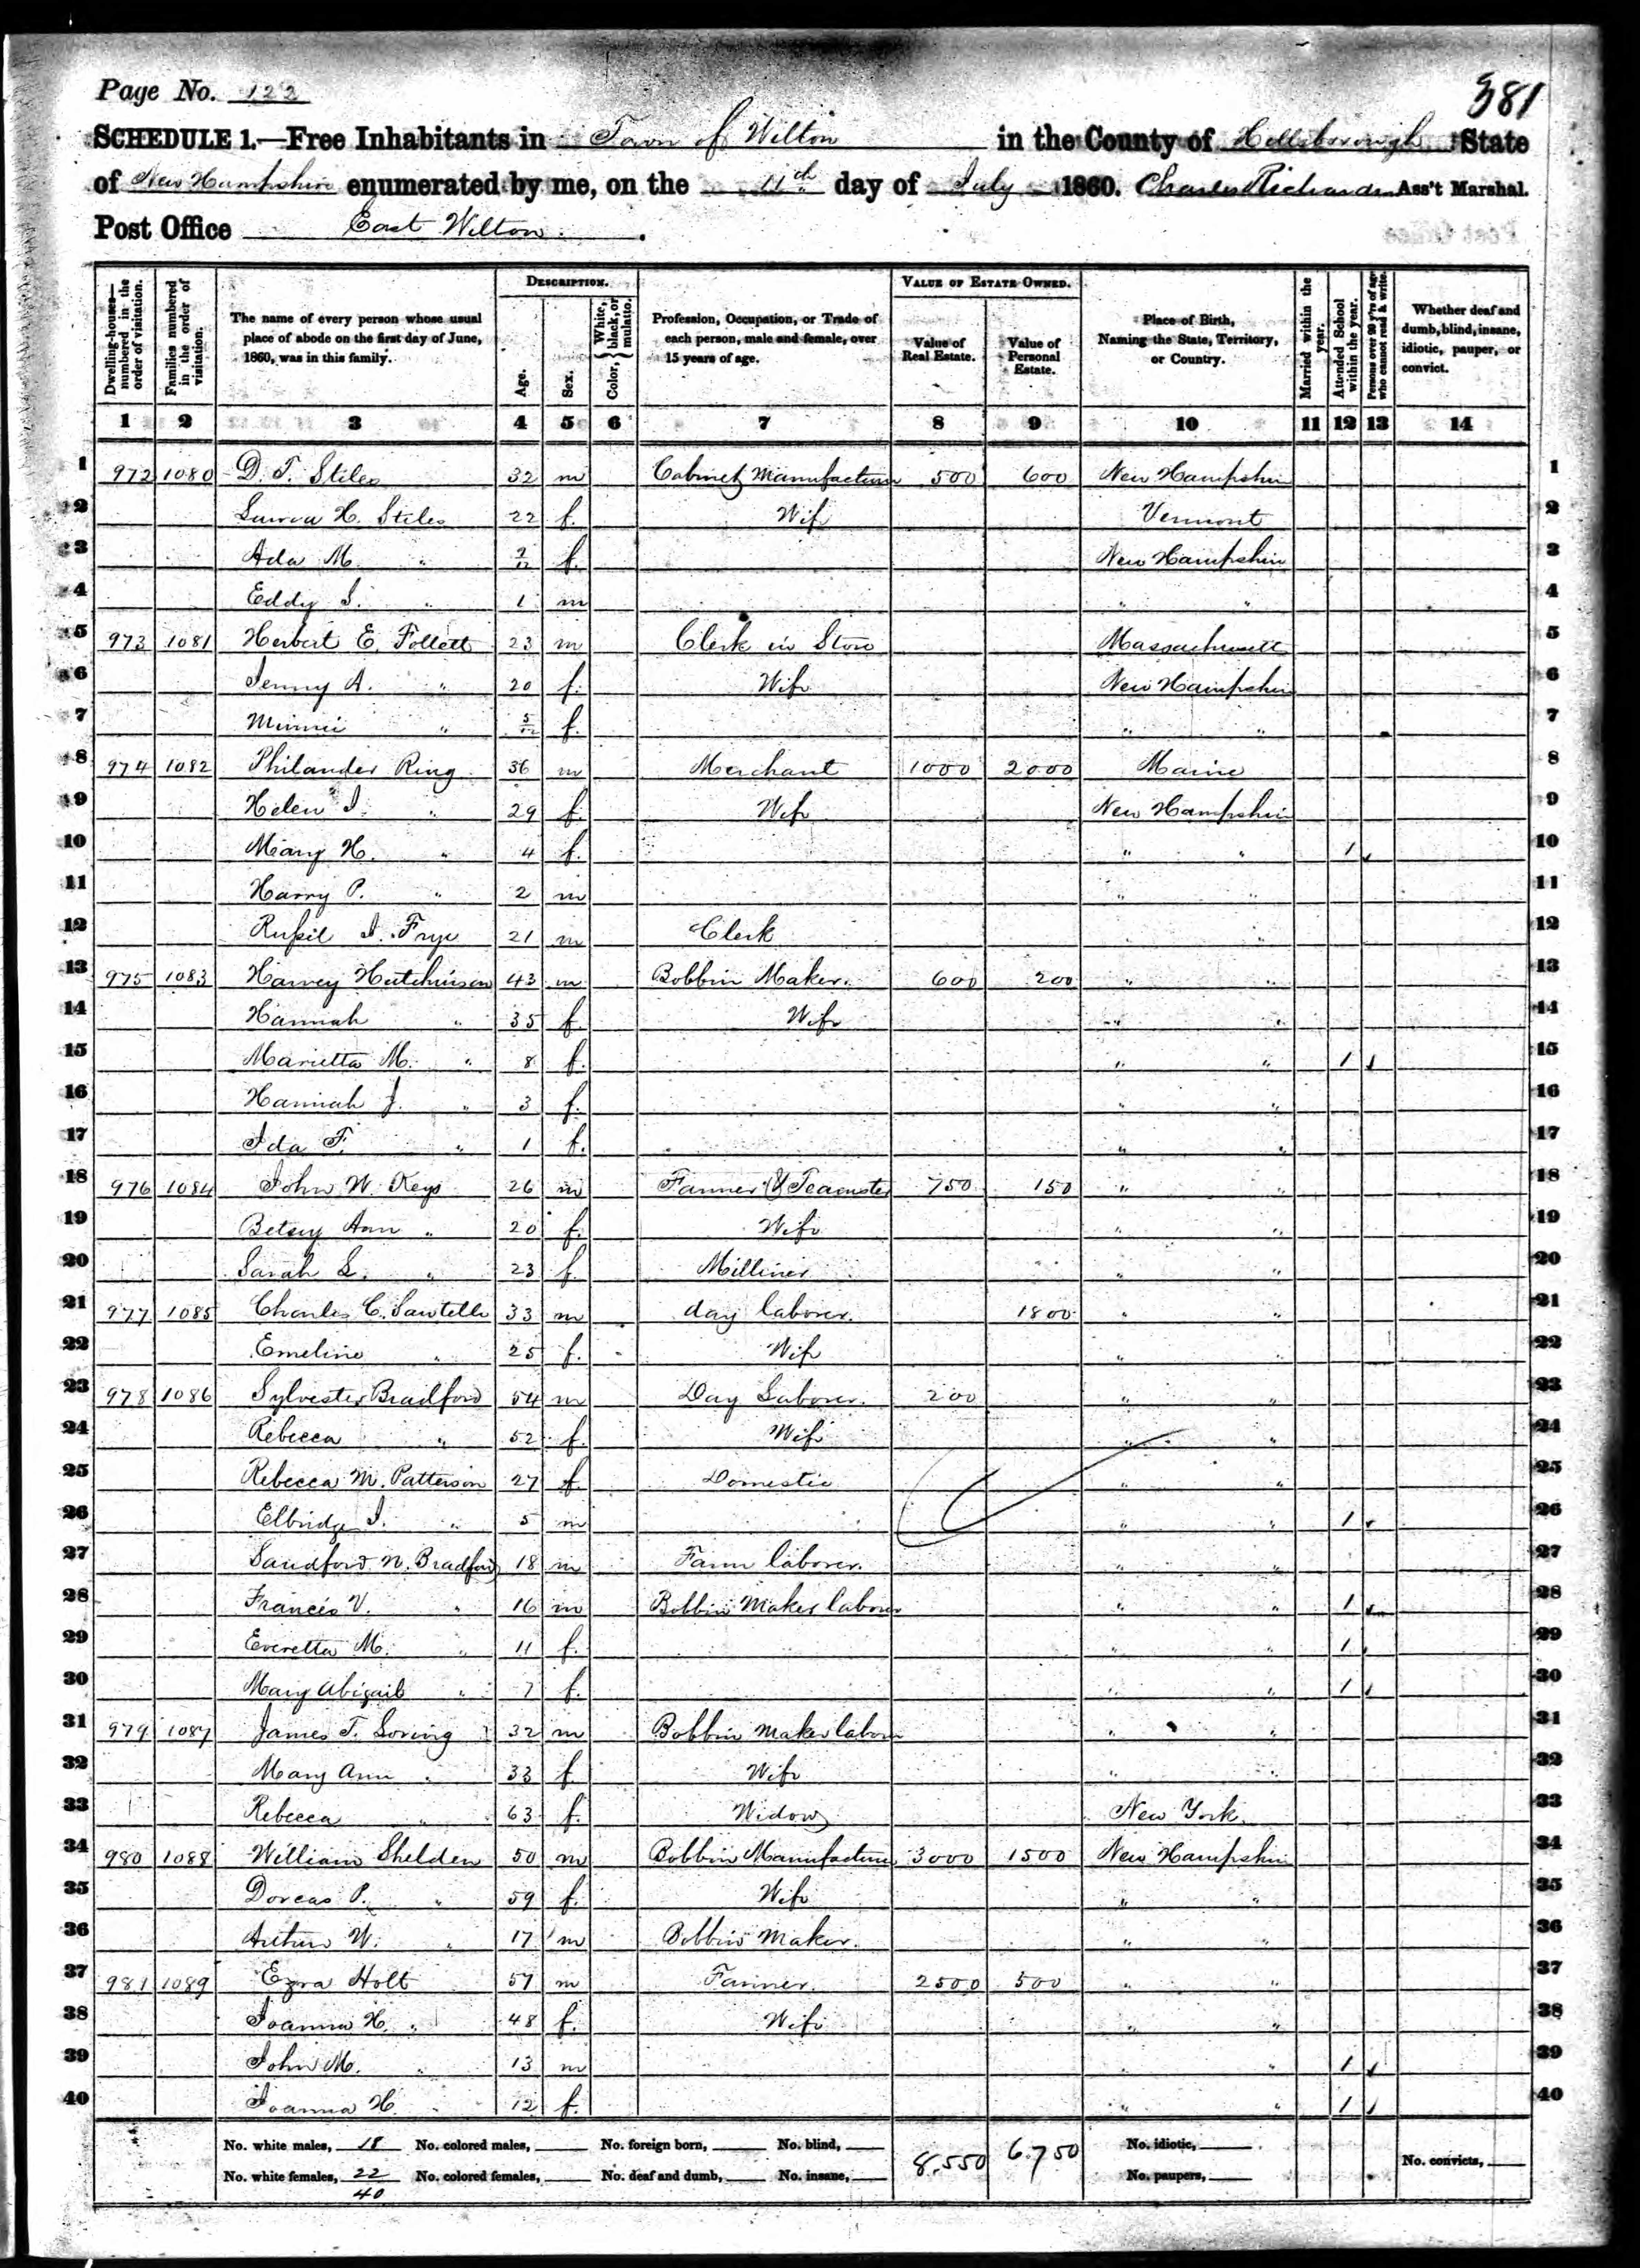 Page No. 122
381
SCHEDULE 1.—Free Inhabitants in Town of Wilton in the County of Hillsborough State
of New Hampshire enumerated by me, on the 11th day of July 1860. Charles Richardson Ass't Marshal.
Post Office East Wilton.
DESCRIPTION. VALUE OF ESTATE OWNED.
Dwelling-houses—numbered in the order of visitation. Families numbered in the order of visitation. The name of every person whose usual place of abode on the first day of June, 1860, was in this family. Age. Sex. Color, { White, black, or mulatto. Profession, Occupation, or Trade of each person, male and female, over 15 years of age. Value of Real Estate. Value of Personal Estate. Place of Birth, Naming the State, Territory, or Country. Married within the year. Attended School within the year. Persons over 20 y'rs of age who cannot read & write. Whether deaf and dumb, blind, insane, idiotic, pauper, or convict.
1 2 3 4 5 6 7 8 9 10 11 12 13 14
1 972 1080 D. T. Stiles 32 m Cabinet Manufacturer 500 600 New Hampshire 1
2 H. Stiles 22 f. Wife Vermont 2
3 Ada M. " f. New Hampshire 3
4 Eddy S. " 1 m " " 4
5 973 1081 Herbert E. Follett 23 m Clerk in Store Massachusetts 5
6 Jenny A. " 20 f. Wife New Hampshire 6
7 Minnie " 5/12 f. " " 7
8 974 1082 Philander Ring 36 m Merchant 1000 2000 Maine 8
9 Helen I. " 29 f. Wife New Hampshire 9
10 Mary H. " 4 f. " " 1 10
11 Harry P. " 2 m " " 11
12 Russil I. Frye 21 m Clerk " " 12
13 975 1083 Harvey Hutchinson 43 m Bobbin Maker. 600 200 " " 13
14 Hannah " 35 f. Wife " " 14
15 Marietta M. " 8 f. " " 1 15
16 Hannah J. " 3 f. " " 16
17 Ida F. " 1 f. " " 17
18 976 1084 John W. Keys 26 m Farmer & Teamster 750 150 " " 18
19 Betsey Ann " 20 f. Wife " " 19
20 Sarah L. " 23 f. Milliner " " 20
21 977 1085 Charles C. Sawtelle 33 m day laborer. 1800 " " 21
22 Emeline " 25 f. Wife " " 22
23 978 1086 Sylvester Bradford 54 m Day Laborer. 200 " " 23
24 Rebecca " 52 f. Wife " " 24
25 Rebecca M. Patterson 27 f. Domestic " " 25
26 Elbridge I. " 5 m " " 1 26
27 Sandford N. Bradford 18 m Farm laborer. " " 27
28 Francis V. " 16 m Bobbin Maker laborer " " 1 28
29 Everetta M. " 11 f. " " 1 29
30 Mary Abigail " 7 f. " " 1 30
31 979 1087 James T. Loring 32 m Bobbin maker labour " " 31
32 Mary Ann " 33 f. Wife " " 32
33 Rebecca " 63 f. Widow New York. 33
34 980 1088 William Shelden 50 m Bobbin Manufacturer 3000 1500 New Hampshire 34
35 Dorcas P. " 59 f. Wife " " 35
36 Arthur W. " 17 m Bobbin Maker. " " 36
37 981 1089 Ezra Holt 57 m Farmer. 2500 500 " " 37
38 Joanna H. " 48 f. Wife " " 38
39 John M. " 13 m " " 1 39
40 Joanna H. " 12 f. " " 1 40
No. white males, 18 No. colored males, No. foreign born, No. blind, 8,550 6,750 No. idiotic,
No. white females, 22 No. colored females, No. deaf and dumb, No. insane, No. paupers, No. convicts,
40